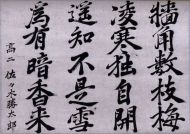 牆角數枝梅
凌寒独自開
遥知不是雪
為有暗香来
高二 佐々木勝太郎